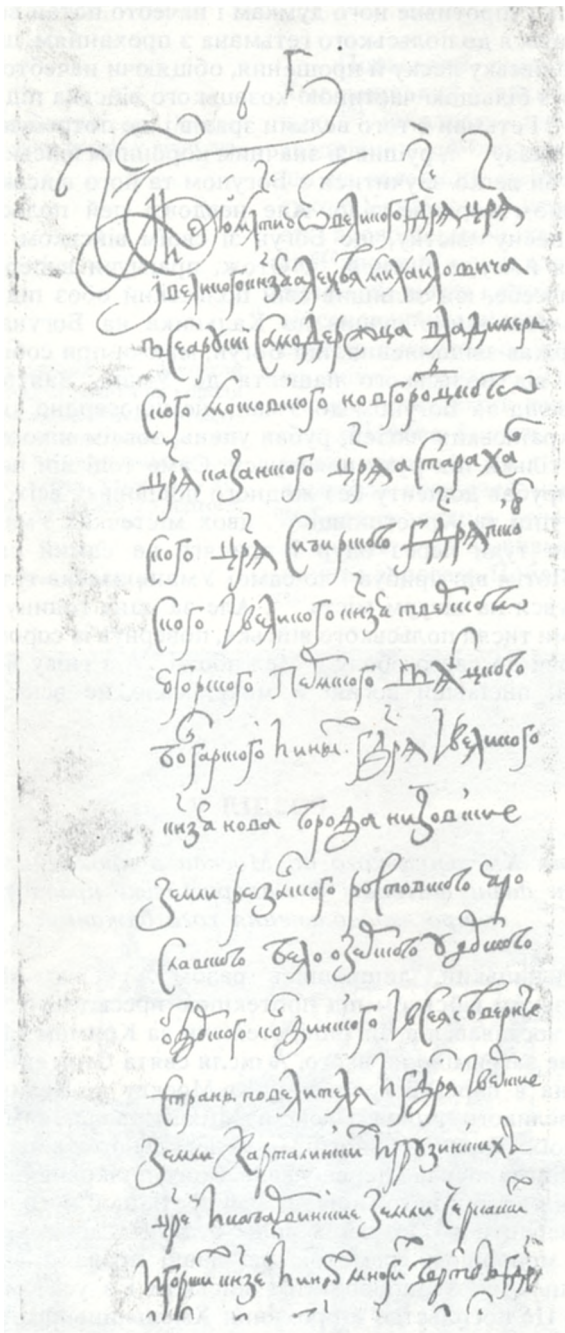 Бжиею млстию ѿ великого гдря цря
і великого кнзя алексѣя михаиловича
всеа русии самодержца владимер
ского московского новгородцкого
цря казанского цря астараха
нского цря сибирского гдря пско
вского і великого кнзя тверского
югорского пермского вятцкого
болгарского и иных гдря і великого
кнзя новагорода низовские
земли резанского ростовского яро
славского белоозерского удорского
обдорского кондинского і всеа северные
страны повелителя и гдря іверские
земли карталинских и грузинских
црей и кабардинские земли черкаских
и горских кнзей и иных многих